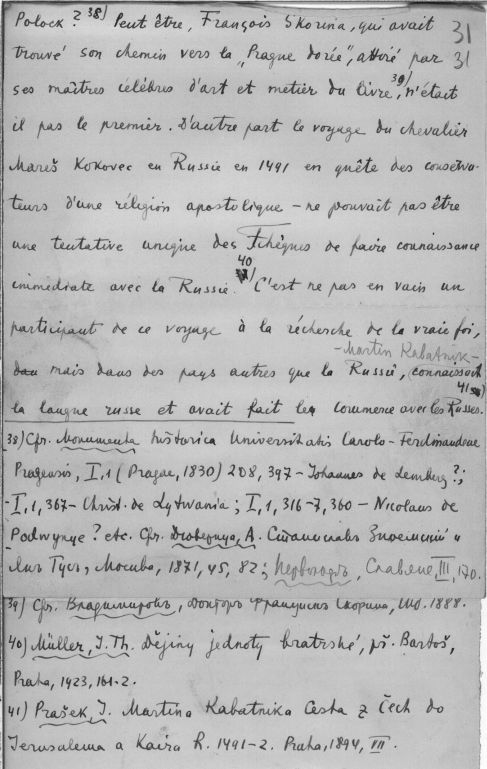 Polock? 38) Peut être, François Skorina, qui avait 31
trouvé son chemin vers la „Prague dorée", attiré par 31
ses maîtres célèbres d'art et metier du livre 39), n'était
il pas le premier. D'autre part le voyage du chevalier
Mareš Kokovec en Russie en 1491 en quête des conserva-
teurs d'une réligion apostolique – ne pouvait pas être
une tentative unique des Tchèques de faire connaissance
immédiate avec la Russie. 40) C'est ne pas en vain un
participant de ce voyage à la récherche de la vraie foi,
– Martin Kabatnik –
mais dans des pays autres que la Russie, connaissait
la langue russe et avait fait le commerce avec les Russes. 41)
38) Cfr. Monumenta historica Universitatis Carolo-Ferdinandeae
Pragensis, I,1 (Pragae, 1830) 208, 397 – Johannes de Lemberg?;
I,1, 367 – Christ. de Lytwania; I,1, 316-7, 360 – Nicolaus de
Podwynye? etc. Cfr. А. Станиславъ Зноемскій и
Янъ Гусъ, Москва, 1871, 45, 82; Первольфъ, Славяне III, 170.
39) Cfr. Владимировъ, Докторъ Францискъ Скорина, 1888.
40) Müller, J. Th. Dějiny jednoty bratrské, př. Bartoš,
Praha, 1923, 161-2.
41) Prašek, J. Martina Kabatnika Cesta z Čech do
Jerusalema a Kaira R. 1491-2. Praha, 1894, VII.